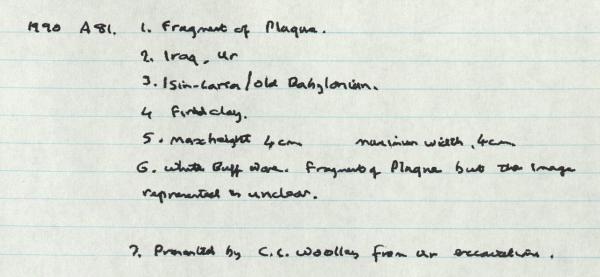 1990 A81. 1. Fragment of Plaque.
2. Iraq, Ur
3. Isin-Larsa/Old Babylonian.
4 Fired clay.
5. Max height 4cm maximum width, 4cm
6. White Buff Ware. Fragment of Plaque but the image
represented is unclear.
7. Presented by C.L. Woolley from Ur excavations.